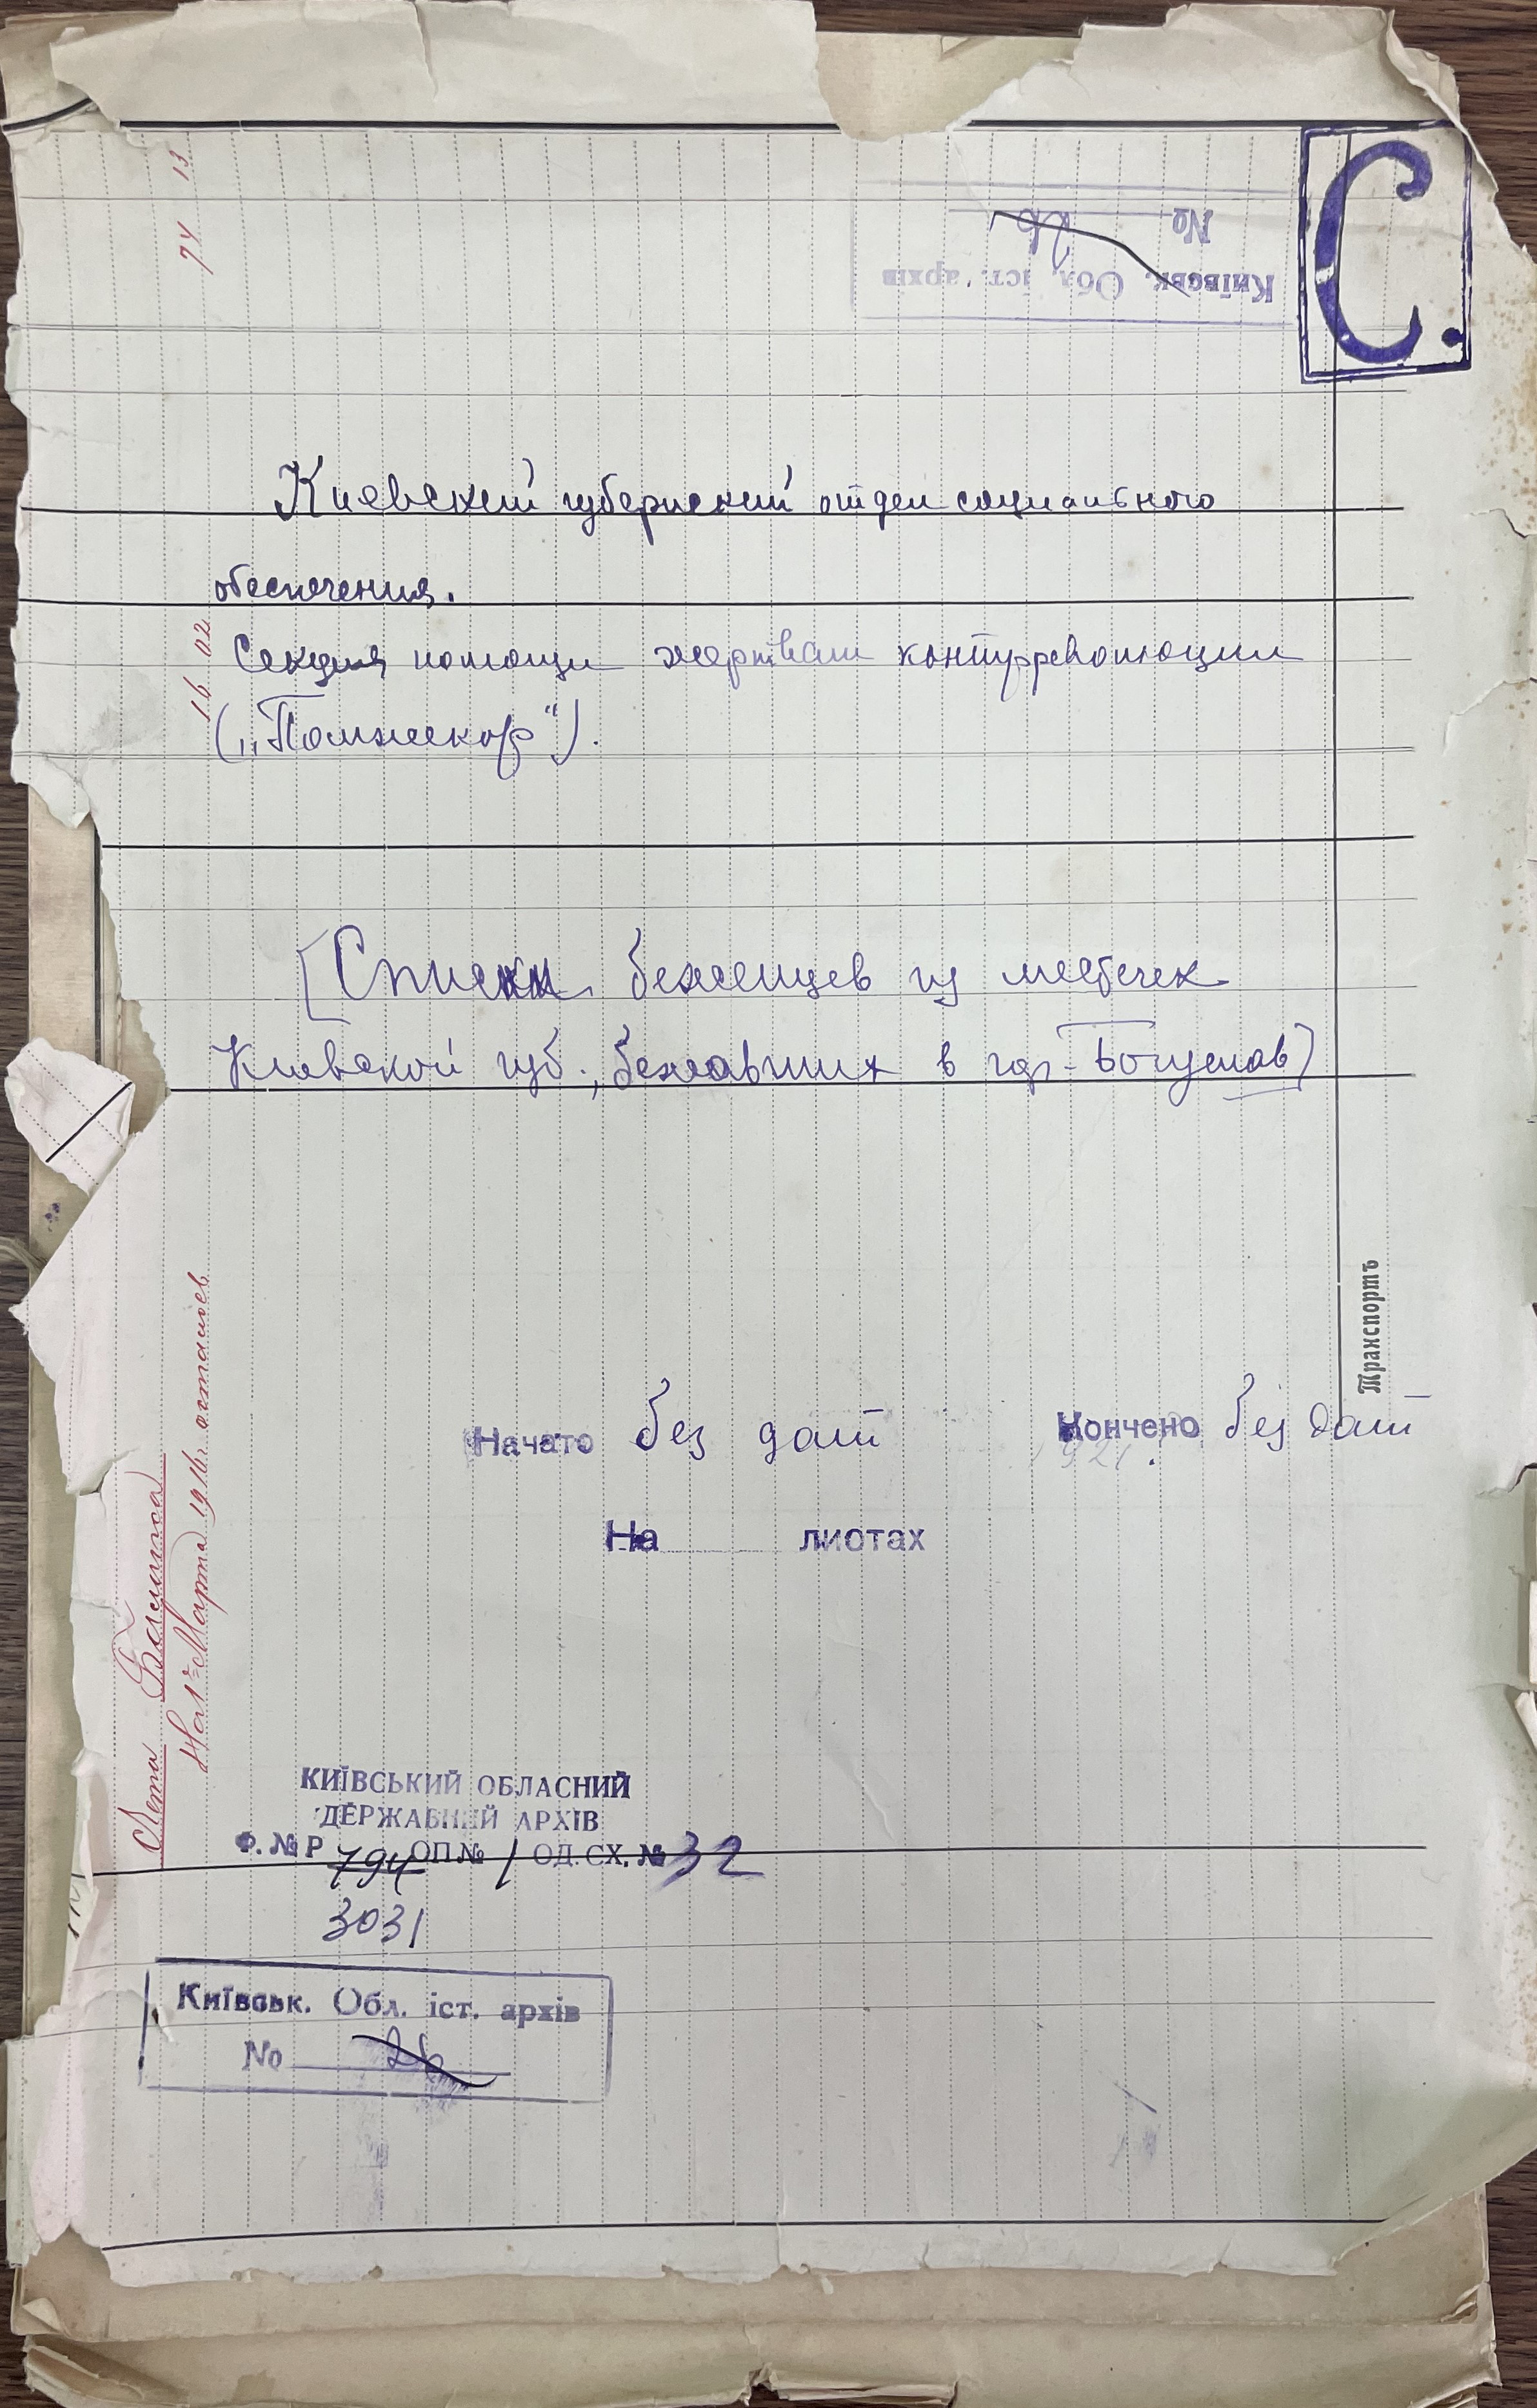 С.
Київськ. Обл. іст. архів
№ 26
74 13
Киевский губернский отдел социального
обеспечения.
16 02
Секция помощи жертвам контрреволюции
(„Помжекор“).
[Списки беженцев из местечек
Киевской губ., бежавших в гор. Богуслав]
Транспортъ
Начато без дат Кончено без дат
1921.
На листах
На 1е Марта 1916. остатов
КИЇВСЬКИЙ ОБЛАСНИЙ
ДЕРЖАВНИЙ АРХІВ
Ф. № Р 794 ОП № 1 ОД. СХ. № 32
3031
Київськ. Обл. іст. архів
№ 26